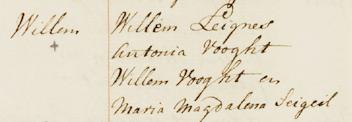 Willem Willem Leignes
Antonia Vooght
Willem Vooght en
Maria Magdalena Seigeil